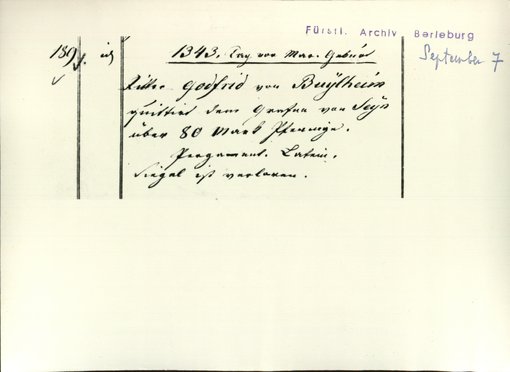 Fürstl. Archiv Berleburg
September 7
189
1343. Tag vor Mar. Geburt
Ritter Godfrid von Buÿlheim
quittirt dem Grafen von Seÿn
über 80 Mark Pfennige.
Pergament. Latein.
Siegel ist verloren.